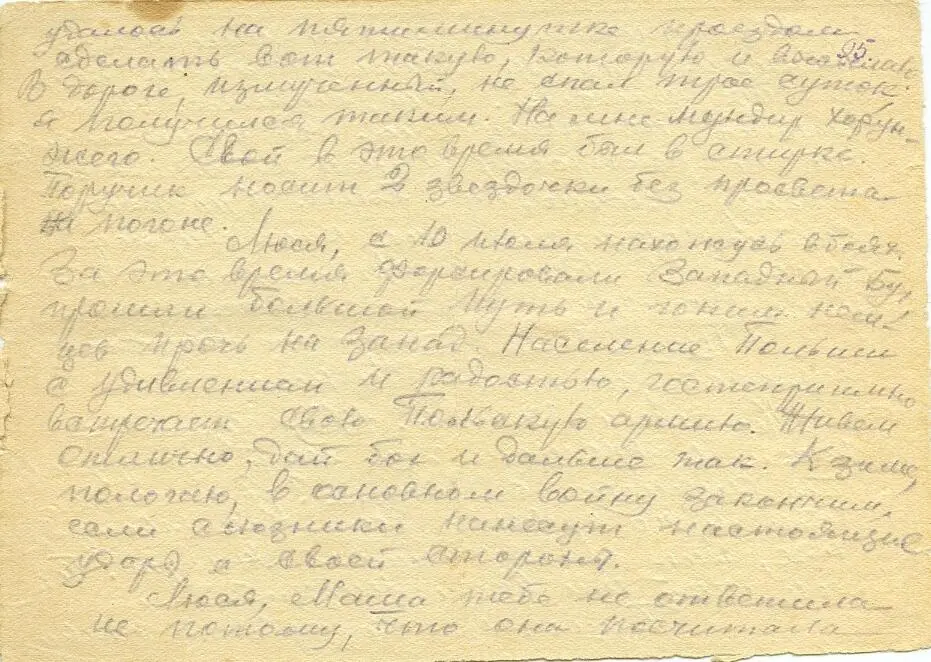 удалось на пятиминутке проездом
25
сделать вот такую, которую и высылаю
В дороге, измученный, не спал трое суток
я получился таким. На мне мундир хорун-
жего. Свой в это время был в стирке.
Поручик носит 2 звездочки без просвета
на погоне.
Люся, с 10 июля нахожусь в боях.
За это время форсировали Западный Буг,
прошли большой путь и гоним нем-
цев прочь на Запад. Население Польши
с удивлением и радостью, гостеприимно
встречает свою Польскую армию. Живем
отлично, дай бог и дальше так. К зиме,
пологаю, в основном войну закончим,
если союзники нанесут настоящие
удары с своей стороны.
Люся, Маша тебе не ответила
не потому, что она посчитала